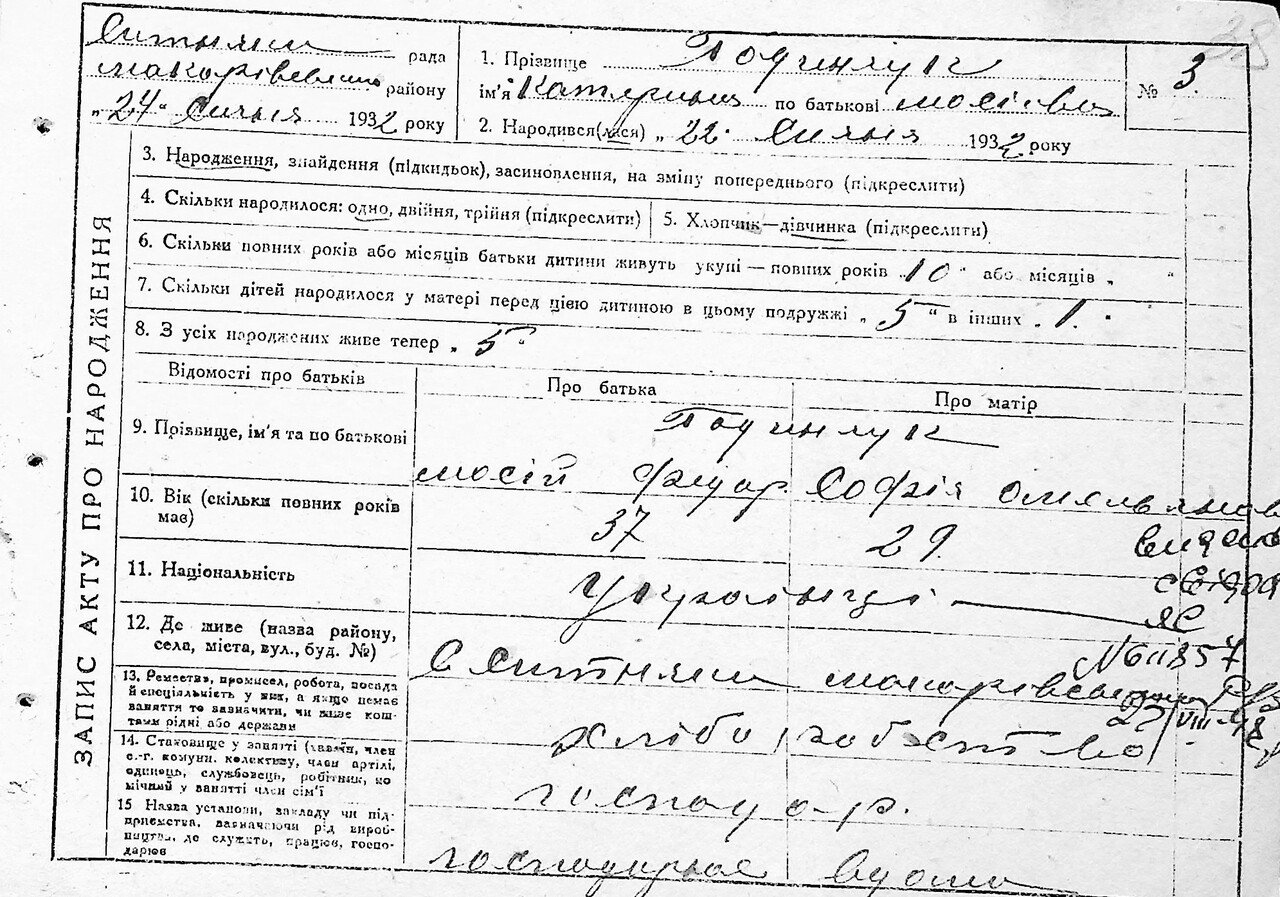 38
Ситняки рада
макарівський району
„24" Січня 1932 року
1. Прізвище Годинчук
ім'я Катерина по батькові мосіївна
2. Народився(лася) „22" Січня 1932 року
№ 3.
ЗАПИС АКТУ ПРО НАРОДЖЕННЯ
3. Народження, знайдення (підкидьок), засиновлення, на зміну попереднього (підкреслити)
4. Скільки народилося: одно, двійня, трійня (підкреслити)
5. Хлопчик—дівчинка (підкреслити)
6. Скільки повних років або місяців батьки дитини живуть укупі — повних років „10" або місяців „ "
7. Скільки дітей народилося у матері перед цією дитиною в цьому подружжі „5" в інших „1."
8. З усіх народжених живе тепер „5"
Відомості про батьків
Про батька
Про матір
9. Прізвище, ім'я та по батькові
Годинчук
мосій Софія
10. Вік (скільки повних років має)
37
29.
11. Національність
Українці
12. Де живе (назва району, села, міста, вул., буд. №)
С Ситняки
№ 611857
22/VIII
13. Ремество, промисел, робота, посада
й спеціяльність у них, а якщо немає
заняття то зазначити, чи живе кош-
тами рідні або держави
хліборобство
14. Становище у занятті (хазяїн, член
с.-г. комуни, колективу, член артілі,
одинець, службовець, робітник, по
мічний у занятті член сім'ї
господар.
15 Назва установи, закладу чи під-
приємства, зазначаючи рід вироб-
ництва, де служить, працює, госпо-
дарює
вдома